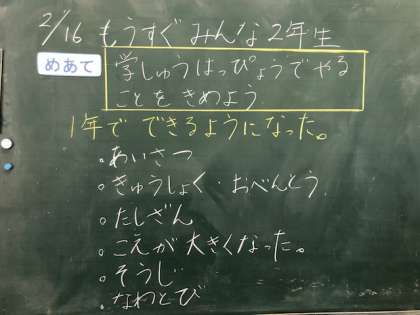 2/16 もうすぐ みんな2年生
めあて
学しゅうはっぴょうでやる
ことを きめよう
1年で できるようになった。
・あいさつ
・きゅうしょく・おべんとう
・たしざん
・こえが 大きくなった。
・そうじ
・なわとび